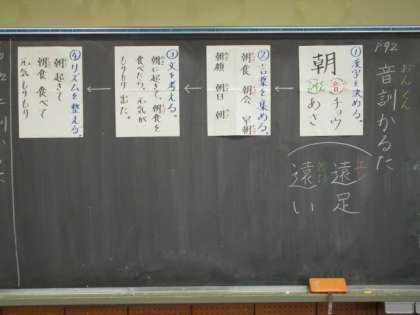 P92
音訓かるた
おんくん
①漢字を決める。
朝
音 チョウ
訓 あさ
遠足
遠い
②言葉を集める。
朝食 朝会 早朝
朝顔 朝日 朝
③文を考える。
朝に起きて、朝食を
食べたら、元気が
もりもり出た。
④リズムを整える。
朝起きて
朝食食べて
元気もりもり